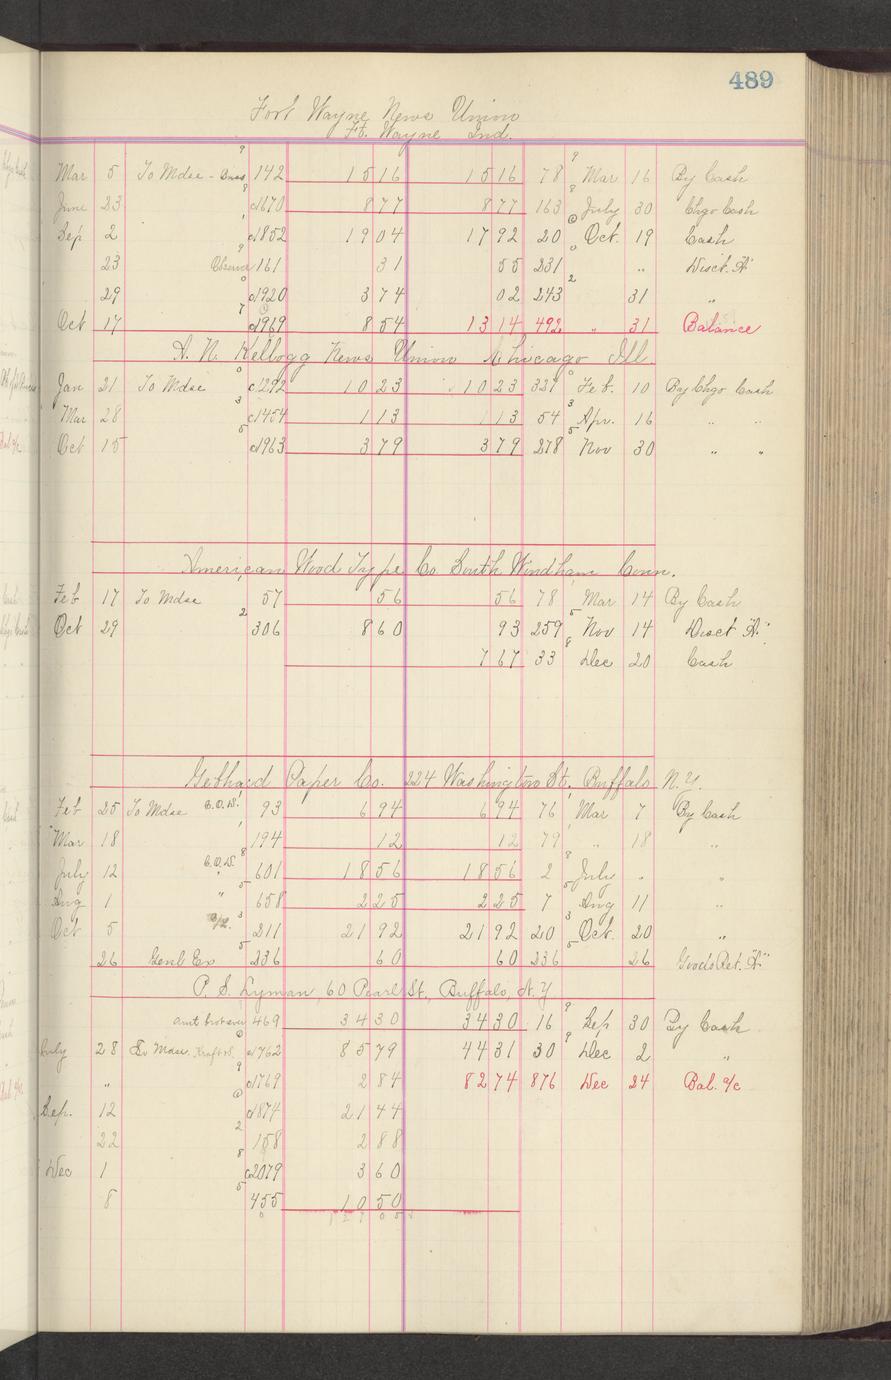 489
Fort Wayne News Union
Ft. Wayne Ind.
Mar 5 To Mdse - 142 15 16 15 16 78 Mar 16 By Cash
June 23 c1670 8 77 8 77 163 July 30 Chgo Cash
Sep 2 c1852 19 04 17 92 20 Oct. 19 Cash
23 161 31 55 231 " Disct. "A"
29 c1920 3 74 02 243 31 "
Oct 17 c1969 8 54 13 14 492 " 31 Balance
A. N. Kellogg News Union Chicago Ill
Jan 21 To Mdse c1292 10 23 10 23 327 Feb. 10 By Chgo Cash
Mar 28 c1454 1 13 1 13 54 Apr. 16 " "
Oct 15 c1963 3 79 3 79 278 Nov 30 " "
American Wood Type Co. South Windham Conn.
Feb 17 To Mdse 57 56 56 78 Mar 14 By Cash
Oct 29 306 8 60 93 259 Nov 14 Disct "A"
7 67 33 Dec 20 Cash
Gebhard Paper Co. 224 Washington St., Buffalo N.Y.
Feb 25 To Mdse C.O.D. 93 6 94 6 94 76 Mar 7 By Cash
Mar 18 194 12 12 79 " 18 "
July 12 C.O.D. 601 18 56 18 56 2 July " "
Aug 1 " 658 2 25 2 25 7 Aug 11 "
Oct 5 211 21 92 21 92 20 Oct. 20 "
26 Genl Ex 236 60 60 236 26 Goods Ret. "A"
P. S. Lyman, 60 Pearl St., Buffalo, N.Y.
amt brot over 469 34 30 34 30 16 Sep 30 By Cash
July 28 To Mdse. c1762 85 79 44 31 30 Dec 2 "
" c1769 2 84 82 74 876 Dec 24 Bal. a/c
Sep. 12 c1874 21 44
22 158 2 88
Dec 1 c2079 3 60
8 455 10 50